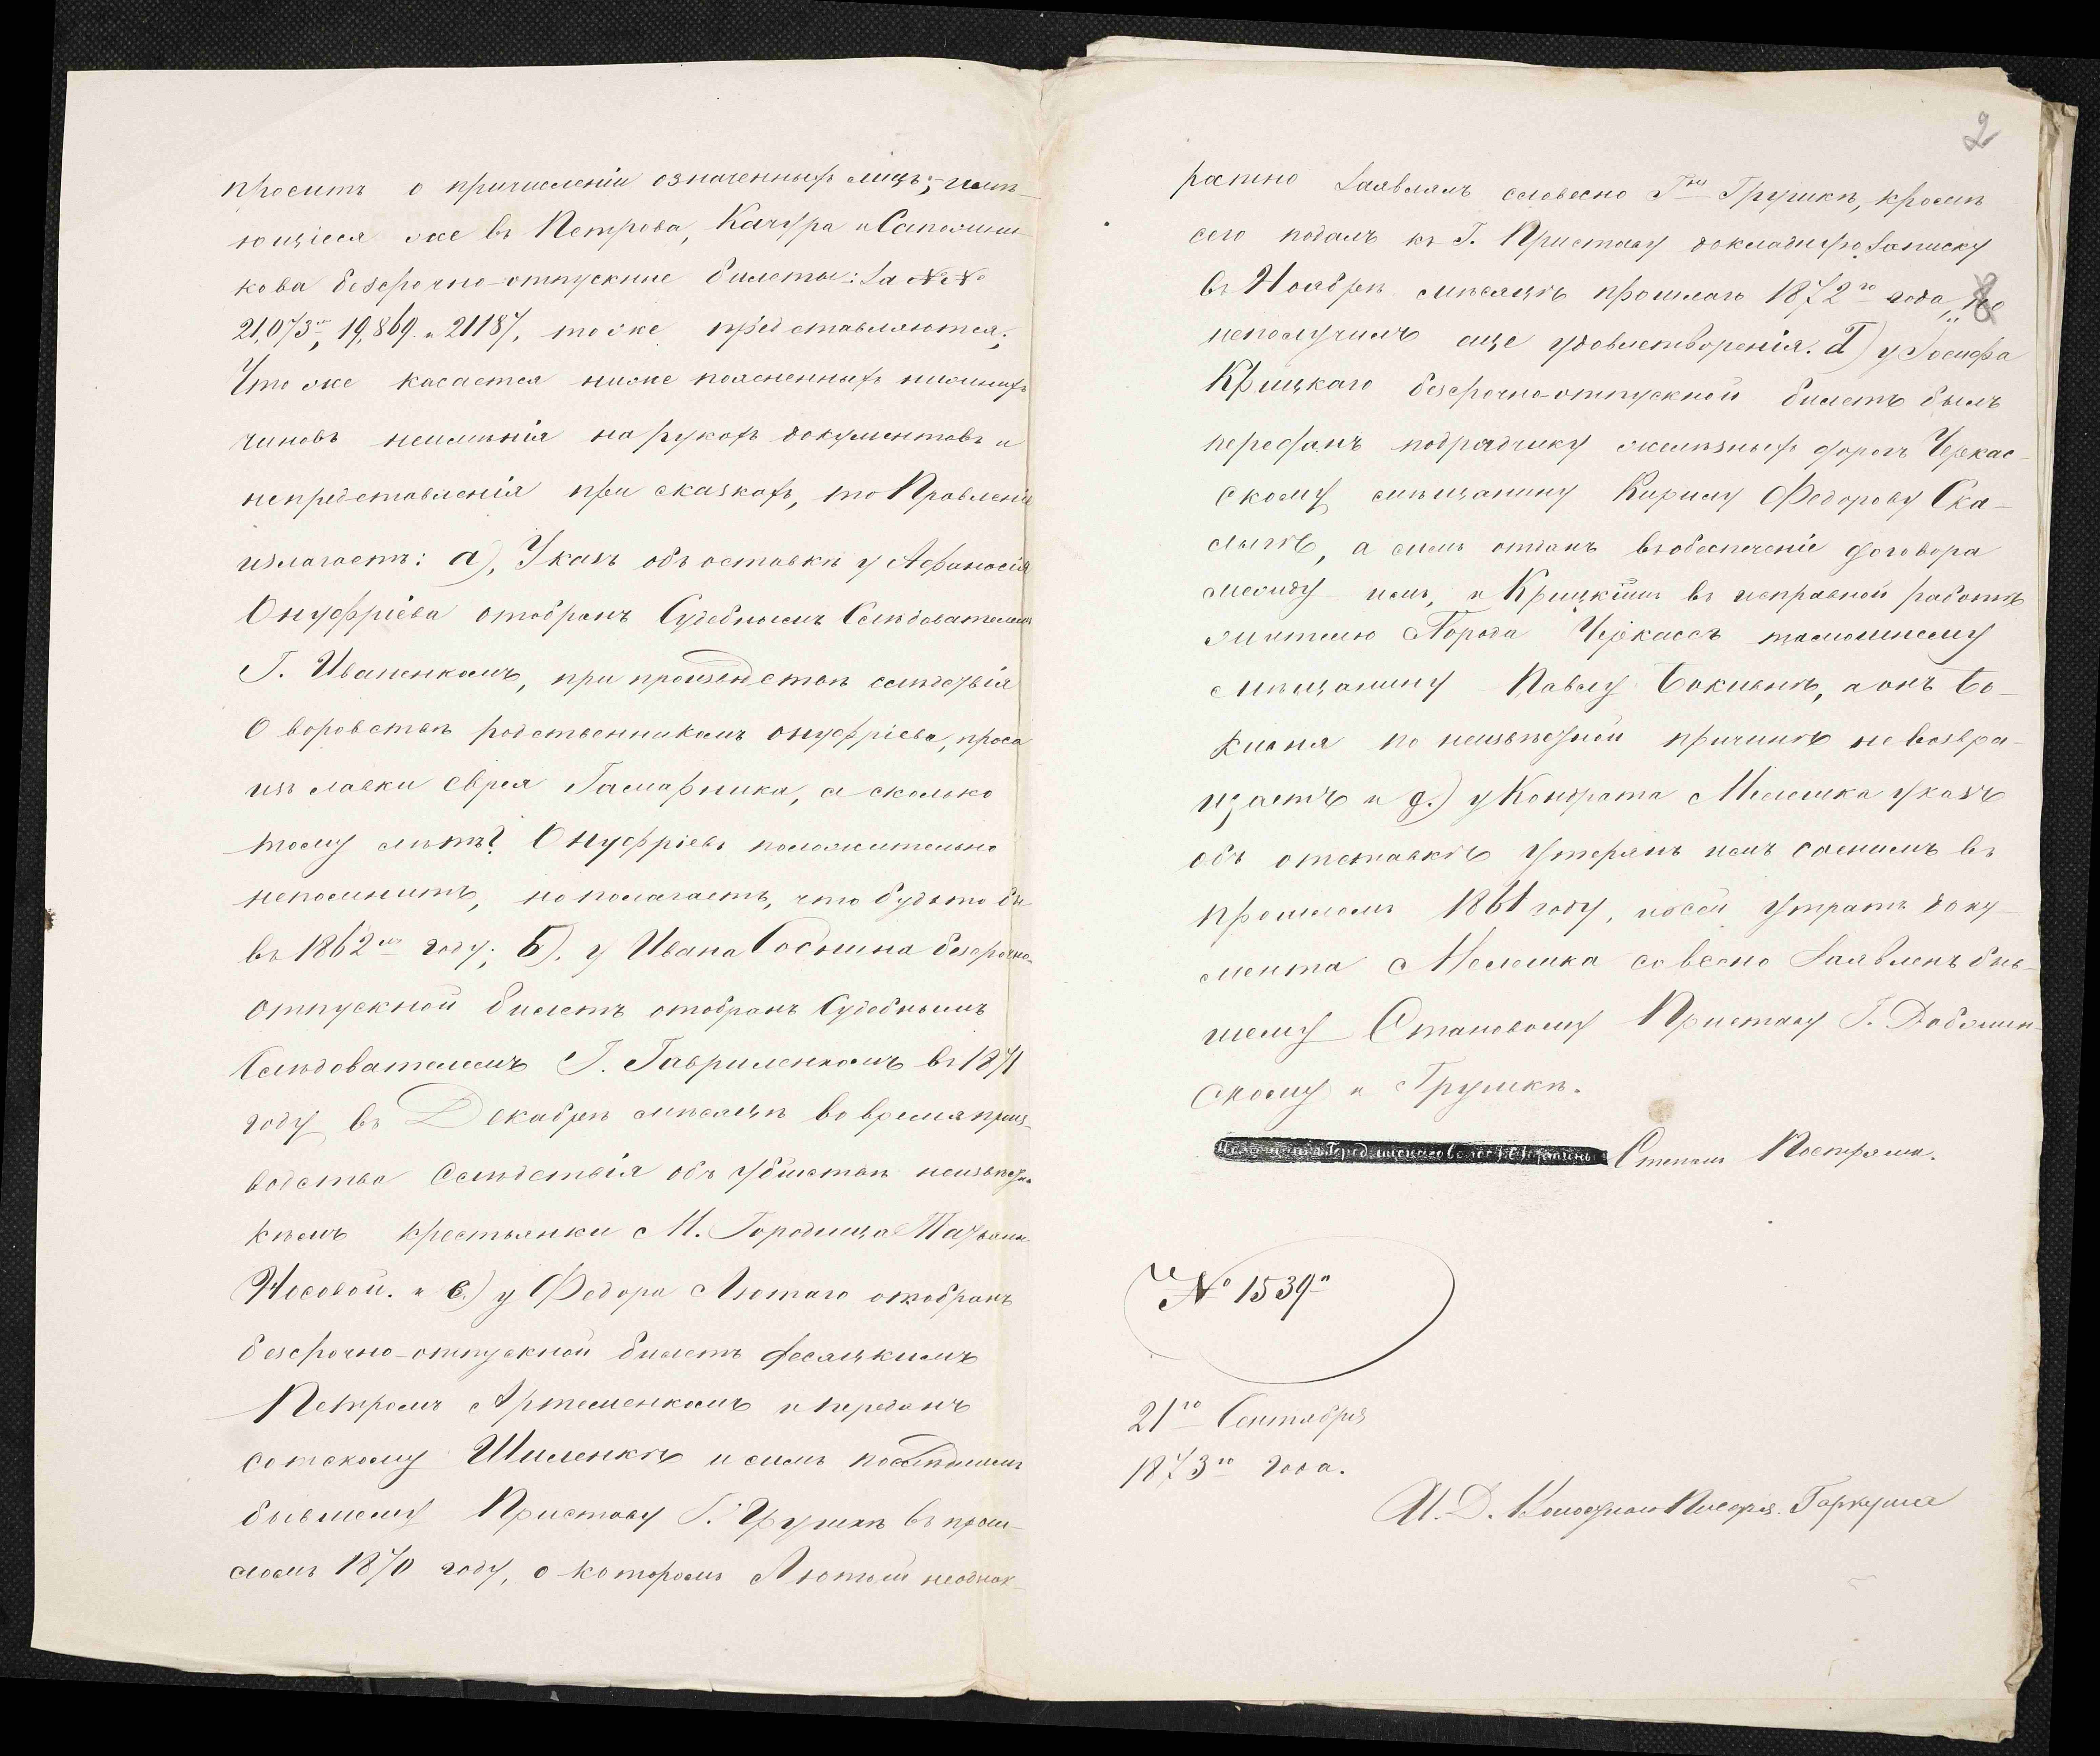 проситъ о причисленіи означенныхъ лицъ; имѣ-
ющіеся же въ Петрова, Качура и Сапожни-
кова безсрочно-отпускные билеты: За №№
21,073м, 19,869 и 21187, тоже представляются;
Что же касается ниже поясненныхъ нижнихъ
чиновъ неименія на рукахъ документовъ и
непредставленія при сказкахъ, то Правленіе
излагаетъ: а), Указъ объ оставкѣ у Афанасія
Онуфріева отобранъ Судебнымъ Слѣдователемъ
Г. Иваненкомъ, при производствѣ слѣдствія
О воровствѣ родственникомъ Онуфріева, проса
изъ лавки Еврея Гамарника, а сколько
тому лѣтъ? Онуфріевъ положительно
непомнитъ, но полагаетъ, что будьто бы
въ 1862мъ году; Б). у Ивана безсрочно-
отпускной билетъ отобранъ Судебнымъ
Слѣдователемъ Г. Гавриленкомъ въ 1871
году въ Декабрѣ мѣсяцѣ во время произ-
водства Слѣдствія объ убійствѣ неизвѣстно
кѣмъ крестьянки М. Городища Татьяны
Носовой. и в.) у Федора Лютаго отобранъ
безсрочно-отпускной билетъ десяцкимъ
Петромъ Артеменкомъ и переданъ
сотскому Шиленкѣ и симъ послѣднимъ
бывшему Приставу Г. Грушкѣ въ прош-
ломъ 1870 году, о которомъ Лютый неоднок-
2
ратно Заявлялъ словесно Гну Грушкѣ, кромѣ
сего подалъ къ Г. Приставу докладную Записку
въ Ноябрѣ мѣсяцѣ прошлаго 1872го года,
неполучилъ еще удовлетворенія. Г) у Іосифа
Крицкаго безсрочно-отпускной билетъ былъ
переданъ подрядчику желѣзныхъ дорогъ Черкас-
скому мѣщанину Кирилу Федорову Ска-
лыгѣ, а симъ отданъ въ обеспеченіе договора
между имъ, и Крицкимъ въ исправной работѣ
жителю Города Черкассъ тамошнему
мѣщанину Павлу Бокіянѣ, а онъ Бо-
кіяна по неизвѣстной причинѣ не возвра-
щаетъ и д.) у Кондрата Мелешка указъ
объ отставкѣ Утерянъ имъ самимъ въ
прошломъ 1861 году, о сей Утратѣ доку-
мента Мелешка словесно Заявленъ быв-
шему Становому Приставу Г.
скому и Грушкѣ.
Степанъ
№ 1539й
21го Сентября
1873го Года.
И. Д. Волостнаго Писаря Гаркуша